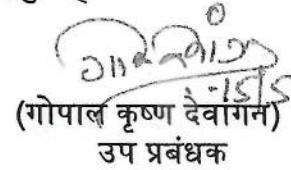 15/5
(गोपाल कृष्ण देवांगन)
उप प्रबंधक